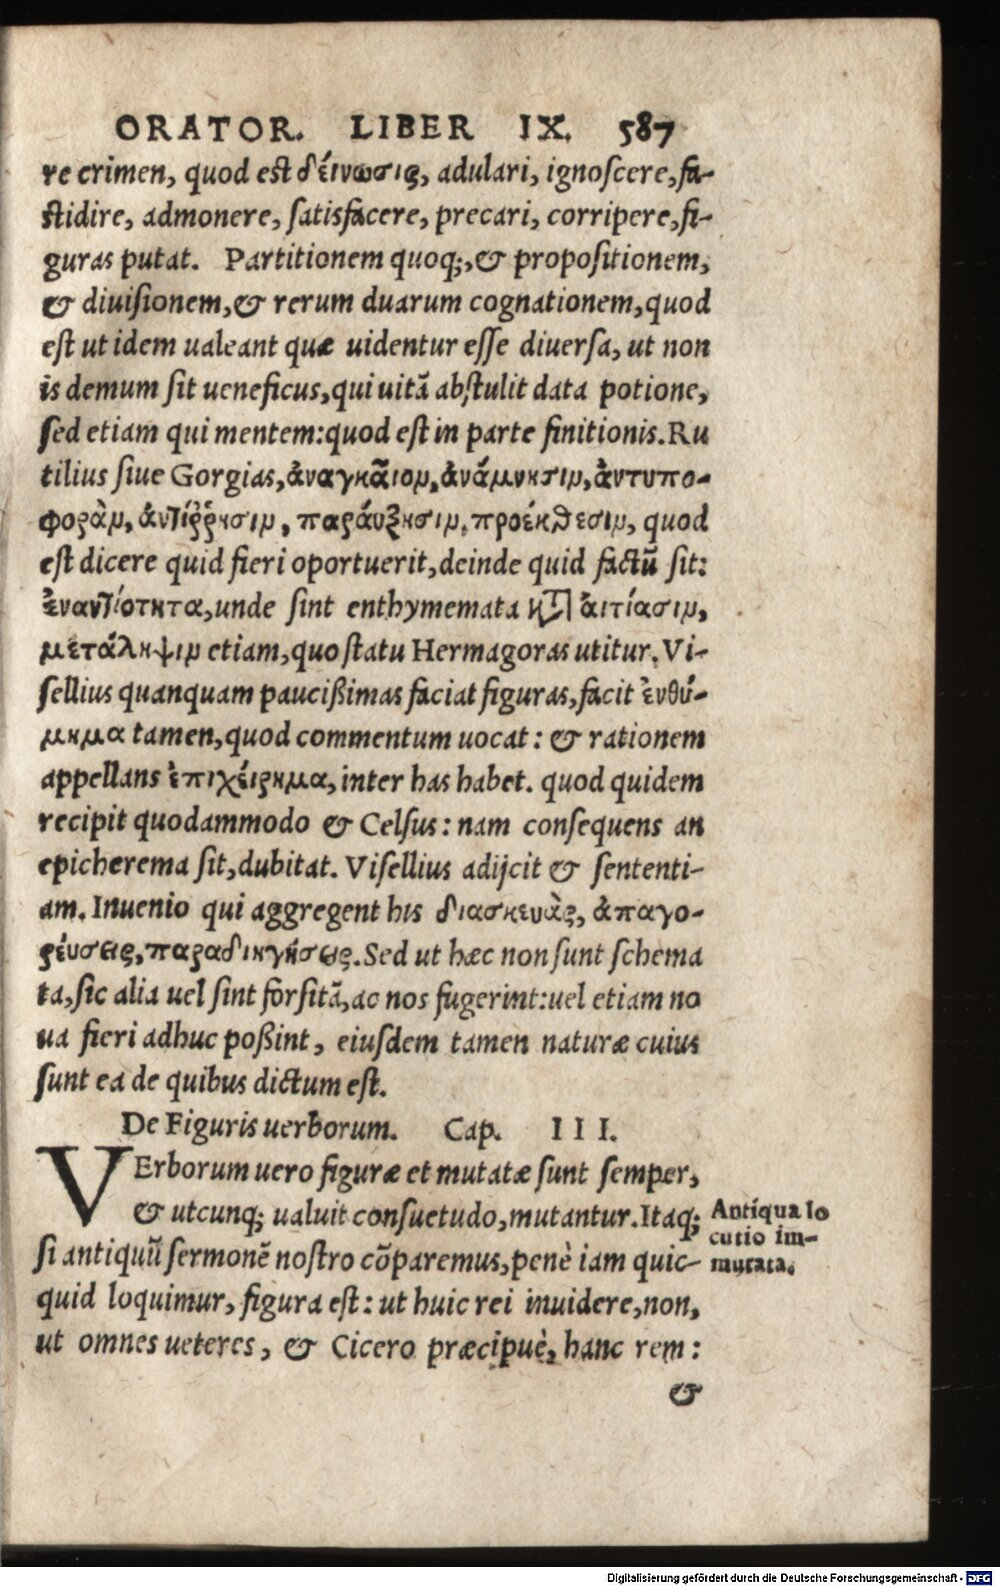 ORATOR. LIBER IX. 587
re crimen, quod est δείνωσις, adulari, ignoscere, fa-
stidire, admonere, satisfacere, precari, corripere, fi-
guras putat. Partitionem quoq;, & propositionem,
& diuisionem, & rerum duarum cognationem, quod
est ut idem ualeant quæ uidentur esse diuersa, ut non
is demum sit ueneficus, qui uitã abstulit data potione,
sed etiam qui mentem: quod est in parte finitionis. Ru
tilius siue Gorgias, ἀναγκᾶιον, ἀνάμνησιν, ἀντυπο-
φορὰν, ἀντίῤῥησιν, παράυξησιν, προέκθεσιν, quod
est dicere quid fieri oportuerit, deinde quid factũ sit:
ἐναντιότητα, unde sint enthymemata κτ̀ ἀιτίασιν,
μετάληψιν etiam, quo statu Hermagoras utitur. Vi-
sellius quanquam paucißimas faciat figuras, facit ἐνθύ-
μημα tamen, quod commentum uocat: & rationem
appellans ἐπιχείρημα, inter has habet. quod quidem
recipit quodammodo & Celsus: nam consequens an
epicherema sit, dubitat. Visellius adijcit & sententi-
am. Inuenio qui aggregent his διασκευὰς, ἀπαγο-
ρέυσεις, παραδιηγήσεις. Sed ut hæc non sunt schema
ta, sic alia uel sint forsitã, ac nos fugerint: uel etiam no
ua fieri adhuc poßint, eiusdem tamen naturæ cuius
sunt ea de quibus dictum est.
De Figuris uerborum. Cap. III.
VErborum uero figuræ et mutatæ sunt semper,
& utcunq; ualuit consuetudo, mutantur. Itaq;
si antiquũ sermonẽ nostro cõparemus, penè iam quic-
quid loquimur, figura est: ut huic rei inuidere, non,
ut omnes ueteres, & Cicero præcipuè, hanc rem:
&
Antiqua lo
cutio im-
mutata.
Digitalisierung gefördert durch die Deutsche Forschungsgemeinschaft - DFG